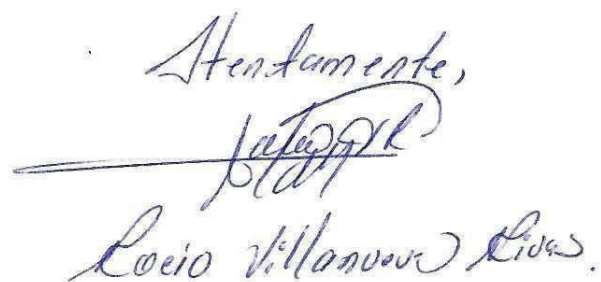 Atentamente,
Rocio Villanueva Rivas.